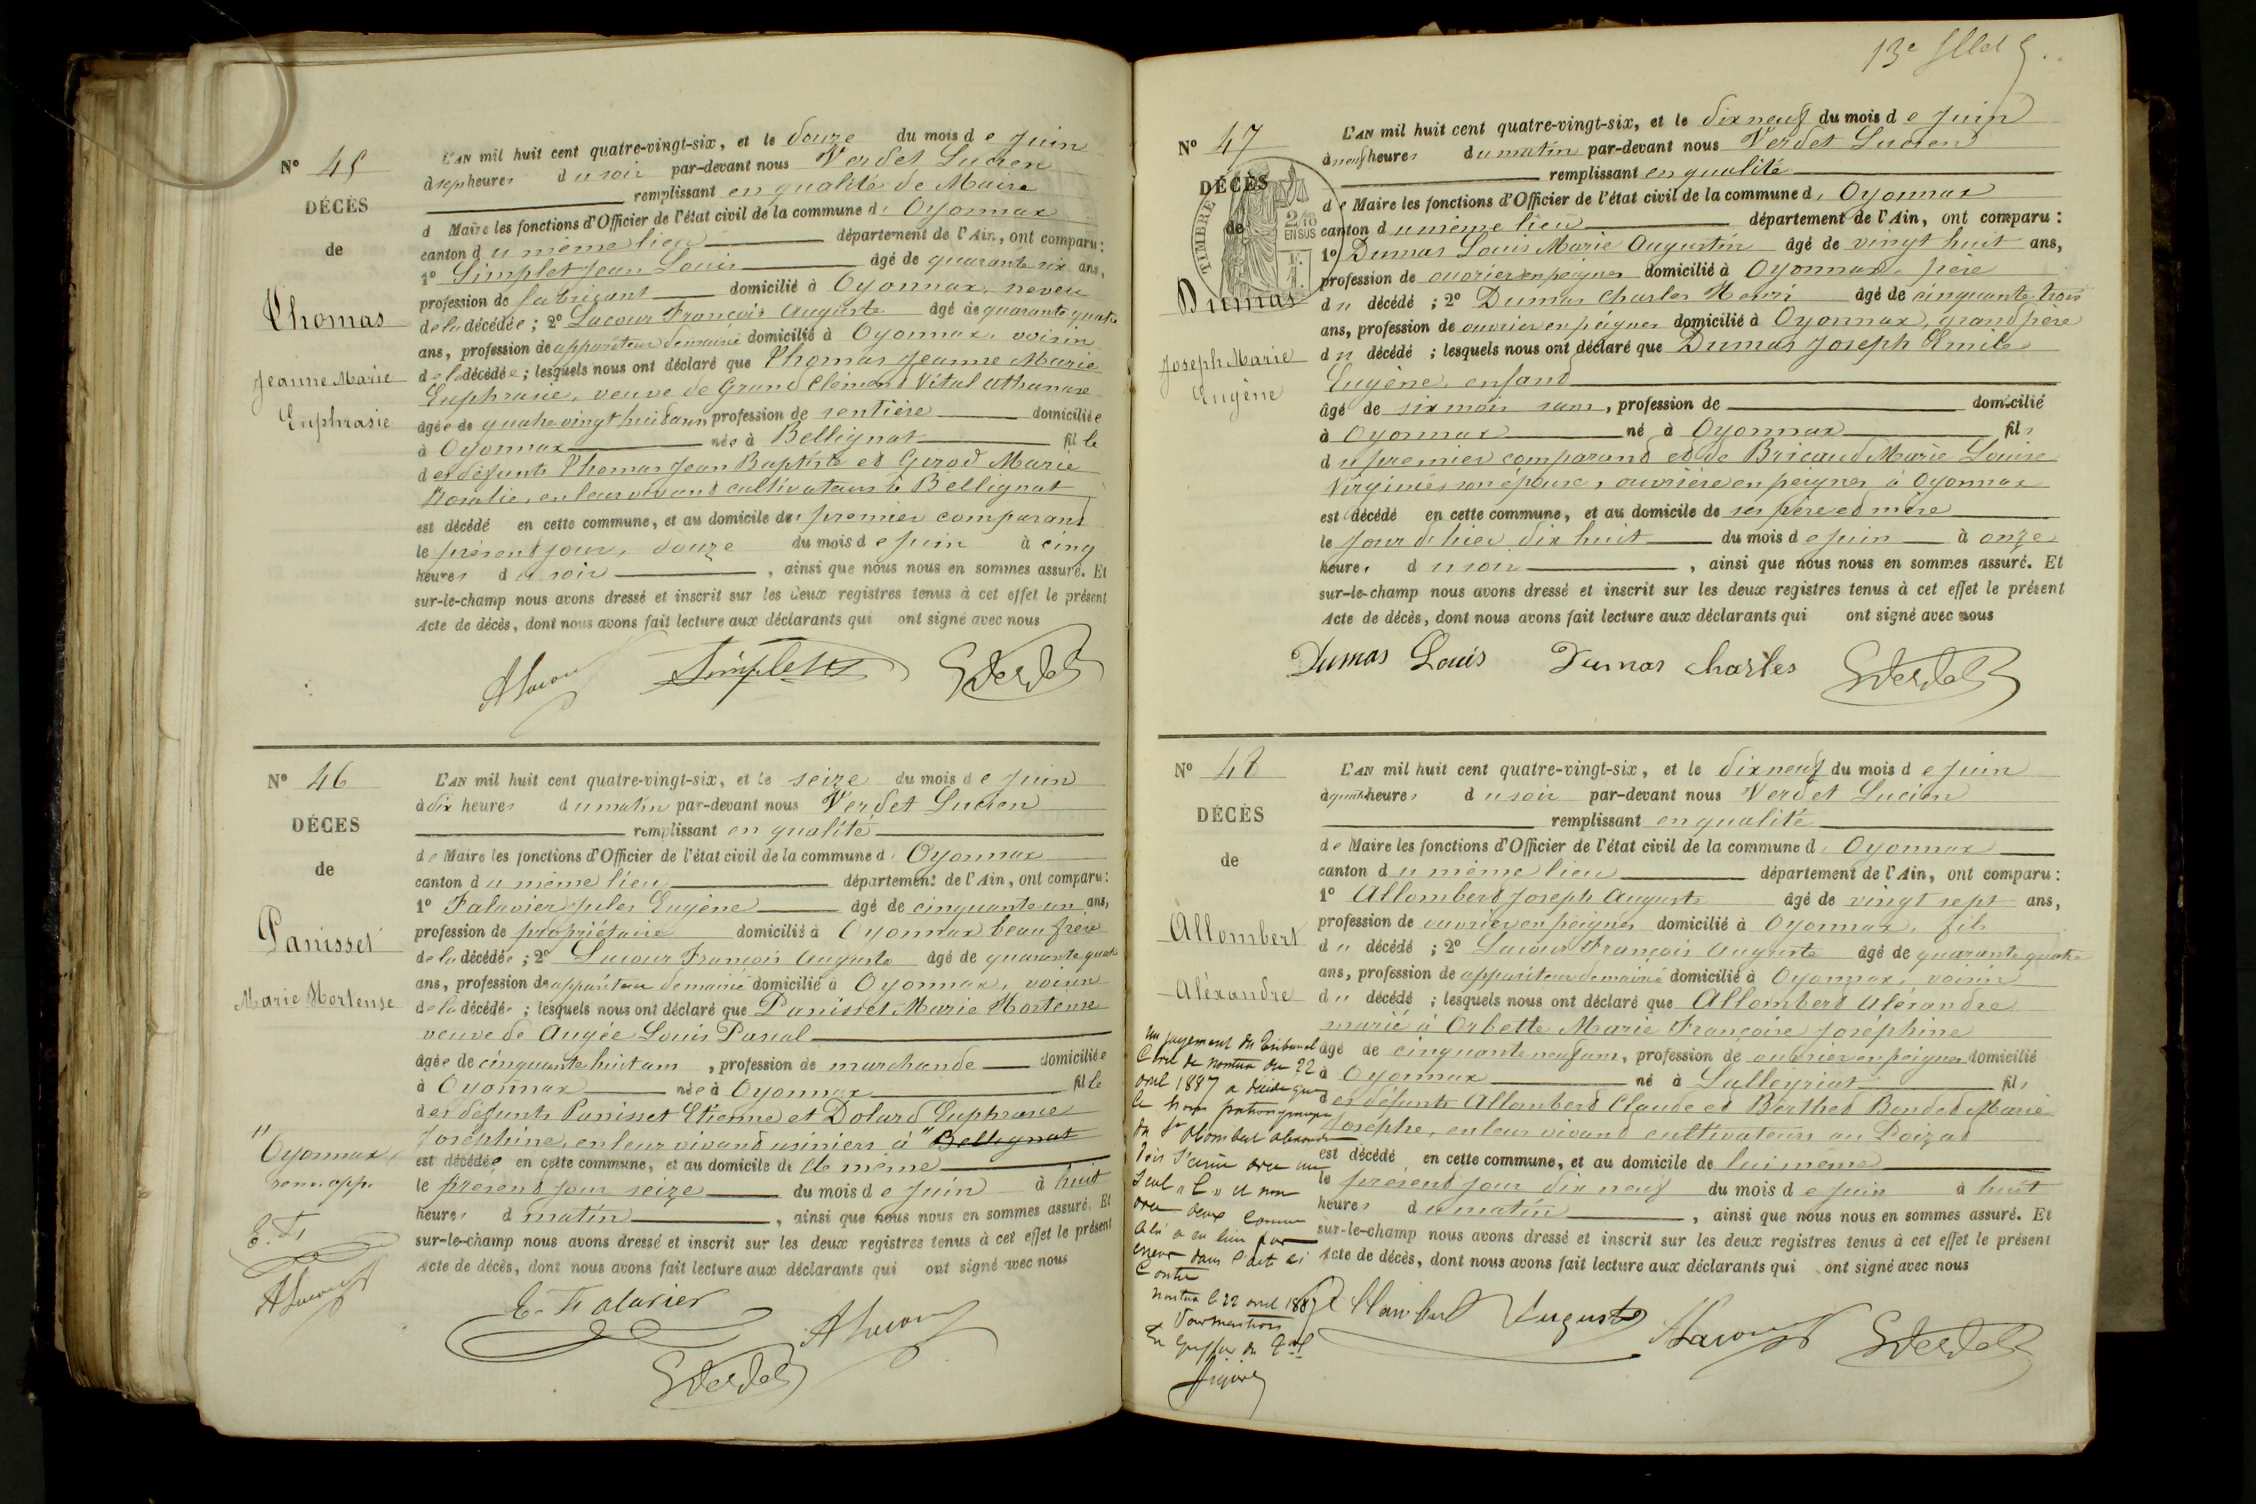 Nº 45
DÉCÈS
de
Thomas
Jeanne Marie
Euphrasie
L'AN mil huit cent quatre-vingt-six, et le douze du mois de Juin
à sept heures du soir par-devant nous Verdet Lucien
remplissant en qualité de Maire
d Maire les fonctions d'Officier de l'état civil de la commune d' Oyonnax
canton du même lieu département de l'Ain, ont comparu :
1º Simplet Jean Louis âgé de quarante six ans,
profession de fabricant domicilié à Oyonnax, neveu
de la décédée ; 2º Lacour François Auguste âgé de quarante quatre
ans, profession de appariteur de mairie domicilié à Oyonnax, voisin
de la décédée ; lesquels nous ont déclaré que Thomas Jeanne Marie
Euphrasie, veuve de Grand Clément Vital Athanase
âgée de quatre vingt huit ans, profession de rentière domiciliée
à Oyonnax née à Bellignat fille
des défunts Thomas Jean Baptiste et Girod Marie
Rosalie, en leur vivant cultivateurs à Bellignat
est décédé en cette commune, et au domicile du premier comparant
le présent jour, douze du mois de Juin à cinq
heures du soir, ainsi que nous nous en sommes assuré. Et
sur-le-champ nous avons dressé et inscrit sur les deux registres tenus à cet effet le présent
Acte de décès, dont nous avons fait lecture aux déclarants qui ont signé avec nous
ALacour Simplet Verdet
Nº 46
DÉCES
de
Panisset
Marie Hortense
L'AN mil huit cent quatre-vingt-six, et le seize du mois de Juin
à dix heures du matin par-devant nous Verdet Lucien
remplissant en qualité
de Maire les fonctions d'Officier de l'état civil de la commune d' Oyonnax
canton du même lieu département de l'Ain, ont comparu :
1º Falavier Jules Eugène âgé de cinquante un ans,
profession de propriétaire domicilié à Oyonnax beau frère
de la décédée ; 2º Lacour François Auguste âgé de quarante quatre
ans, profession de appariteur de mairie domicilié à Oyonnax, voisin
de la décédée ; lesquels nous ont déclaré que Panisset Marie Hortense
veuve de Augée Louis Pascal
âgée de cinquante huit ans, profession de marchande domiciliée
à Oyonnax née à Oyonnax fille
des défunts Panisset Etienne et Dolard Euphrasie
Joséphine, en leur vivant usiniers à " Bellignat
est décédée en cette commune, et au domicile de elle même
le présent jour seize du mois de Juin à huit
heures d matin, ainsi que nous nous en sommes assuré. Et
sur-le-champ nous avons dressé et inscrit sur les deux registres tenus à cet effet le présent
Acte de décès, dont nous avons fait lecture aux déclarants qui ont signé avec nous
" Oyonnax
E. F.
ALacour
E. Falavier ALacour
Verdet
13e fllet
Nº 47
DÉCÈS
de
Dumas
Joseph Marie
Eugène
TIMBRE
2/10
EN SUS
L'AN mil huit cent quatre-vingt-six, et le dix neuf du mois de Juin
à neuf heures du matin par-devant nous Verdet Lucien
remplissant en qualité
de Maire les fonctions d'Officier de l'état civil de la commune d' Oyonnax
canton du même lieu département de l'Ain, ont comparu :
1º Dumas Louis Marie Augustin âgé de vingt huit ans,
profession de ouvrier en peignes domicilié à Oyonnax, père
du décédé ; 2º Dumas Charles Henri âgé de cinquante trois
ans, profession de ouvrier en peignes domicilié à Oyonnax, grand père
du décédé ; lesquels nous ont déclaré que Dumas Joseph Emile
Eugène, enfant
âgé de six mois sans, profession de domicilié
à Oyonnax né à Oyonnax fils
du premier comparant et de Bricaud Marie Louise
Virginie son épouse, ouvrière en peignes à Oyonnax
est décédé en cette commune, et au domicile de ses père et mère
le jour d'hier dix huit du mois de Juin à onze
heures du soir, ainsi que nous nous en sommes assuré. Et
sur-le-champ nous avons dressé et inscrit sur les deux registres tenus à cet effet le présent
Acte de décès, dont nous avons fait lecture aux déclarants qui ont signé avec nous
Dumas Louis Dumas Charles Verdet
Nº 48
DÉCÈS
de
Allombert
Aléxandre
L'AN mil huit cent quatre-vingt-six, et le dix neuf du mois de Juin
à quatre heures du soir par-devant nous Verdet Lucien
remplissant en qualité
de Maire les fonctions d'Officier de l'état civil de la commune d' Oyonnax
canton du même lieu département de l'Ain, ont comparu :
1º Allombert Joseph Auguste âgé de vingt sept ans,
profession de ouvrier en peignes domicilié à Oyonnax, fils
du décédé ; 2º Lacour François Auguste âgé de quarante quatre
ans, profession de appariteur de mairie domicilié à Oyonnax, voisin
du décédé ; lesquels nous ont déclaré que Allombert Aléxandre
marié à Orbette Marie Françoise Joséphine
âgé de cinquante neuf ans, profession de ouvrier en peignes domicilié
à Oyonnax né à Lalleyriat fils
des défunts Allombert Claude et Berthet Bondet Marie
Josephe, en leur vivant cultivateurs au Poizat
est décédé en cette commune, et au domicile de lui même
le présent jour dix neuf du mois de Juin à huit
heures du matin, ainsi que nous nous en sommes assuré. Et
sur-le-champ nous avons dressé et inscrit sur les deux registres tenus à cet effet le présent
Acte de décès, dont nous avons fait lecture aux déclarants qui ont signé avec nous
Un jugement du Tribunal
Civil de Nantua du 22
avril 1887 a décidé que
le nom patronymique
du Sr Alombert Alexandre
doit s'écrire avec un
seul "l" et non
avec deux comme
cela a eu lieu par
erreur dans l'acte ci
contre
Nantua le 22 avril 1887
Pour mention
Le Greffier du Tal
Allombert Auguste ALacour Verdet